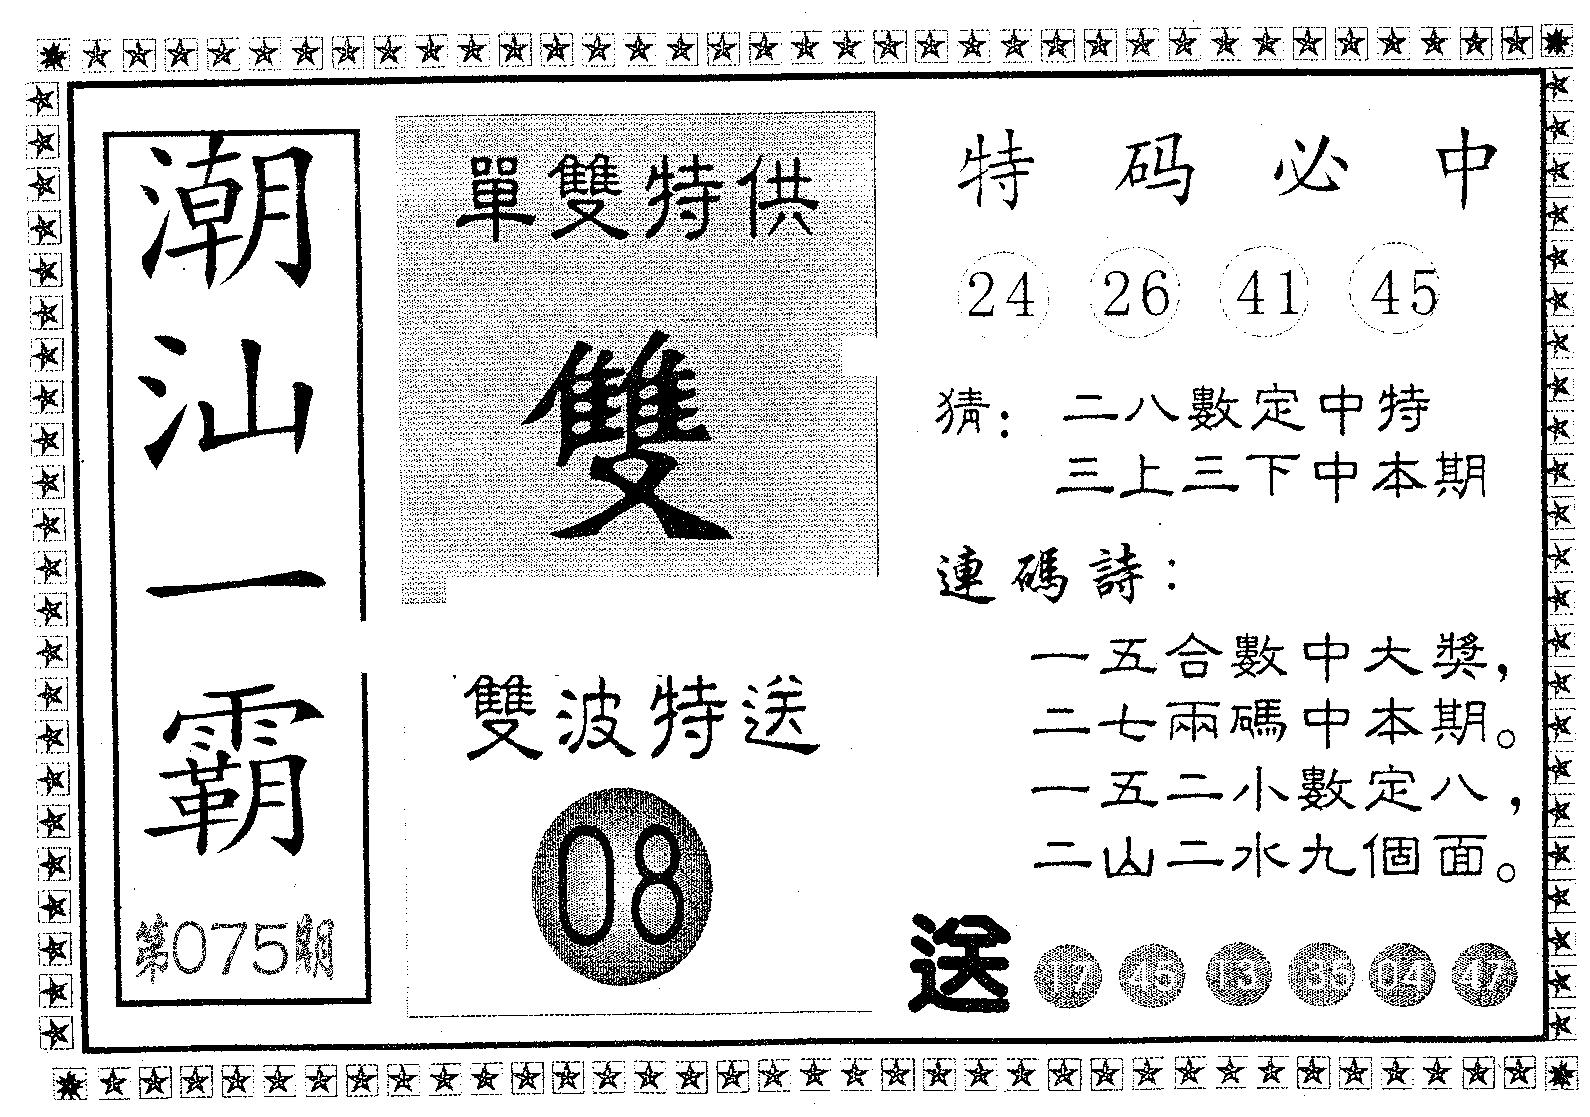 潮汕一霸
第075期
單雙特供
雙
雙波特送
08
特码必中
24 26 41 45
猜：二八數定中特
三上三下中本期
連碼詩：
一五合數中大獎，
二七兩碼中本期。
一五二小數定八，
二山二水九個面。
送 17 45 13 36 04 47